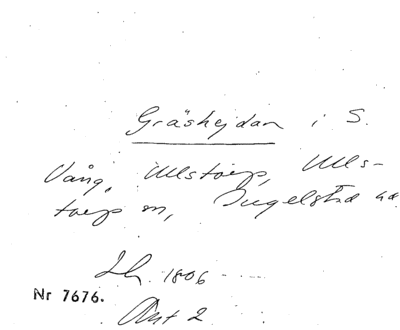 Gräshejdan i S.
Vång, Ullstorp, Ulls-
torp sn, Ingelstad hd
1806
Nr 7676.
Akt 2